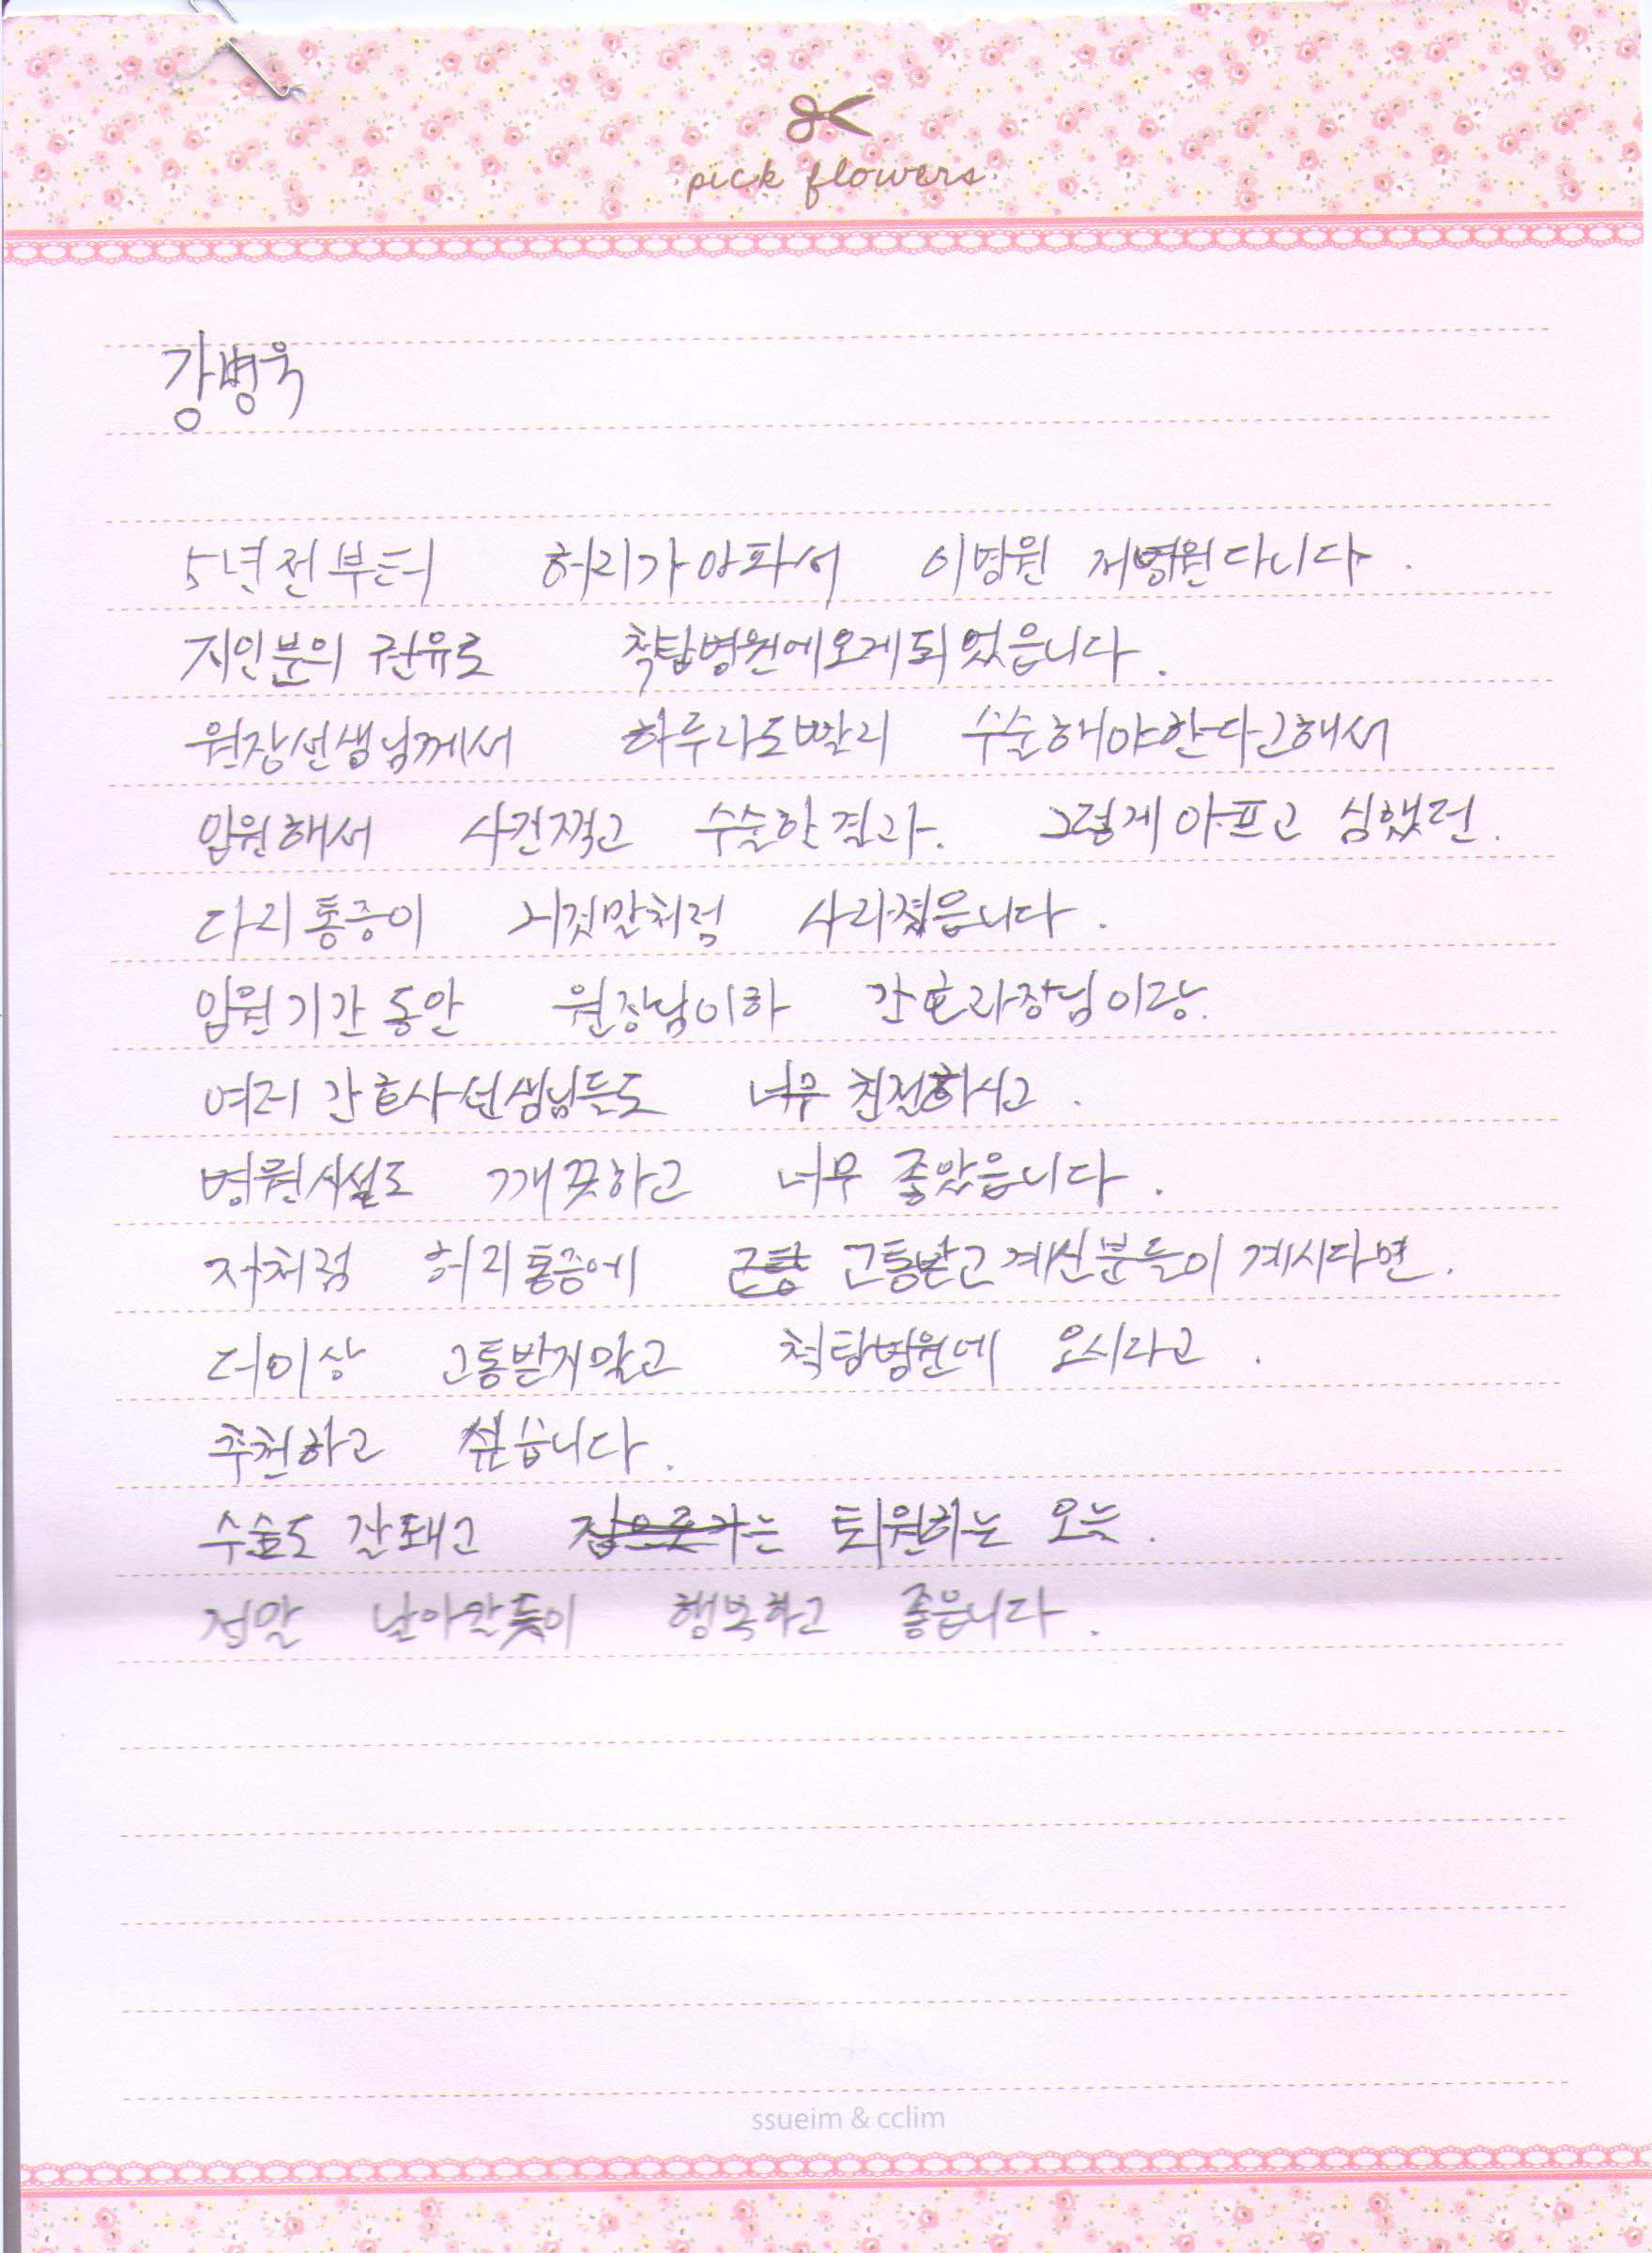 pick flowers
강병욱
5년전부터 허리가아파서 이병원 저병원다니다.
지인분의 권유로 척탑병원에오게되었읍니다.
원장선생님께서 하루라도빨리 수술해야한다고해서
입원해서 사진찍고 수술한결과. 그렇게아프고 심했던.
다리통증이 거짓말처럼 사라졌읍니다.
입원기간동안 원장님이하 간호과장님이랑.
여러 간호사선생님들도 너무 친절하시고.
병원시설도 깨끗하고 너무 좋았읍니다.
저처럼 허리통증에 고통받고계신분들이계시다면.
더이상 고통받지말고 척탑병원에 오시라고.
추천하고 싶습니다.
수술도 잘돼고 집으로가는 퇴원하는 오늘.
정말 날아갈듯이 행복하고 좋읍니다.
ssueim & cclim